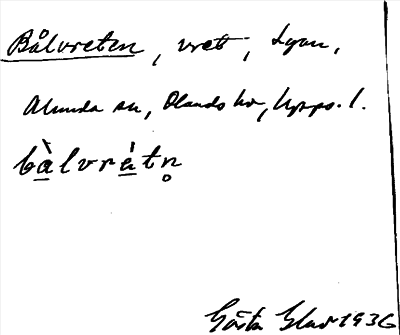 Bålvreten, vret, Lyan,
Alunda sn, Olands hd, Upps. l.
bàlvrátn̥
Gösta Elar 1936